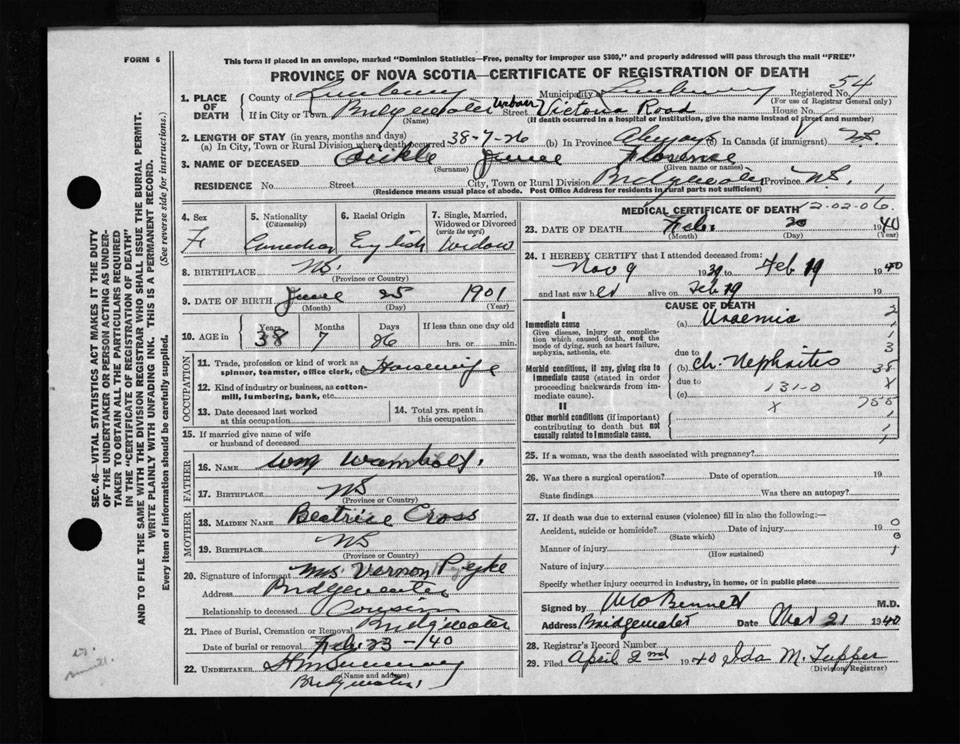 FORM 6
This form if placed in an envelope, marked "Dominion Statistics—Free, penalty for improper use $300," and properly addressed will pass through the mail "FREE"
PROVINCE OF NOVA SCOTIA—CERTIFICATE OF REGISTRATION OF DEATH
1. PLACE OF DEATH
County of Lunenburg Municipality of Lunenburg Registered No. 54
(For use of Registrar General only)
If in City or Town Bridgewater Urban Street Victoria Road House No.
(Name) (If death occurred in a hospital or institution, give the name instead of street and number)
2. LENGTH OF STAY (in years, months and days)
(a) In City, Town or Rural Division where death occurred 38-7-26 (b) In Province Always (c) In Canada (if immigrant)
3. NAME OF DECEASED June Florence
(Surname) (Given name or names)
RESIDENCE No. Street City, Town or Rural Division Bridgewater Province N.S.
(Residence means usual place of abode. Post Office Address for residents in rural parts not sufficient)
4. Sex F
5. Nationality (Citizenship) Canadian
6. Racial Origin English
7. Single, Married, Widowed or Divorced (write the word) Widow
8. BIRTHPLACE N.S.
(Province or Country)
9. DATE OF BIRTH June 25 1901
(Month) (Day) (Year)
10. AGE in Years Months Days If less than one day old
38 7 26 hrs. or min.
OCCUPATION
11. Trade, profession or kind of work as spinner, teamster, office clerk, etc. Housewife
12. Kind of industry or business, as cotton-mill, lumbering, bank, etc.
13. Date deceased last worked at this occupation
14. Total yrs. spent in this occupation
15. If married give name of wife or husband of deceased
FATHER
16. NAME Wm Wambolt
17. BIRTHPLACE NS
(Province or Country)
MOTHER
18. MAIDEN NAME Beatrice Cross
19. BIRTHPLACE NS
(Province or Country)
20. Signature of informant Mrs Vernon Pyke
Address Bridgewater
Relationship to deceased Cousin
21. Place of Burial, Cremation or Removal Bridgewater
Date of burial or removal Feb 23-/40
22. UNDERTAKER
(Name and address)
Bridgewater
MEDICAL CERTIFICATE OF DEATH 12-02-06.
23. DATE OF DEATH Feb. 20 1940
(Month) (Day) (Year)
24. I HEREBY CERTIFY that I attended deceased from:
Nov 9 1939 to Feb 19 1940
and last saw her alive on Feb 19 19
CAUSE OF DEATH
I
Immediate cause (a) Uraemia
Give disease, injury or complication which caused death, not the mode of dying, such as heart failure, asphyxia, asthenia, etc.
due to
Morbid conditions, if any, giving rise to immediate cause (stated in order proceeding backwards from immediate cause). (b) Ch. Nephritis
due to
(c) 131-0
II
Other morbid conditions (if important) contributing to death but not causally related to immediate cause. x
2
1
3
38
x
755
1
1
25. If a woman, was the death associated with pregnancy?
26. Was there a surgical operation? Date of operation 19
State findings Was there an autopsy?
27. If death was due to external causes (violence) fill in also the following:—
Accident, suicide or homicide? Date of injury 19
(State which)
Manner of injury
(How sustained)
Nature of injury
Specify whether injury occurred in industry, in home, or in public place
Signed by Bennett M.D.
Address Bridgewater Date 21 1940
28. Registrar's Record Number
29. Filed April 2nd 1940 Ida M. Tupper
(Division Registrar)
SEC. 46—VITAL STATISTICS ACT MAKES IT THE DUTY
OF THE UNDERTAKER OR PERSON ACTING AS UNDER-
TAKER TO OBTAIN ALL THE PARTICULARS REQUIRED
IN THE "CERTIFICATE OF REGISTRATION OF DEATH"
AND TO FILE THE SAME WITH THE DIVISION REGISTRAR WHO SHALL ISSUE THE BURIAL PERMIT.
WRITE PLAINLY WITH UNFADING INK. THIS IS A PERMANENT RECORD.
Every item of information should be carefully supplied. (See reverse side for instructions.)